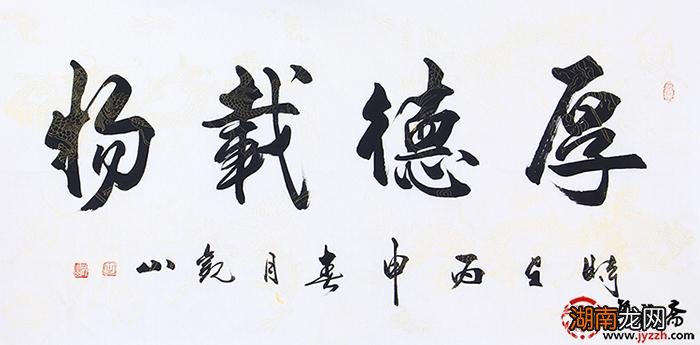 厚德載物
時丙申春月觀山
斋
湖南龙网
www.jyzzh.com